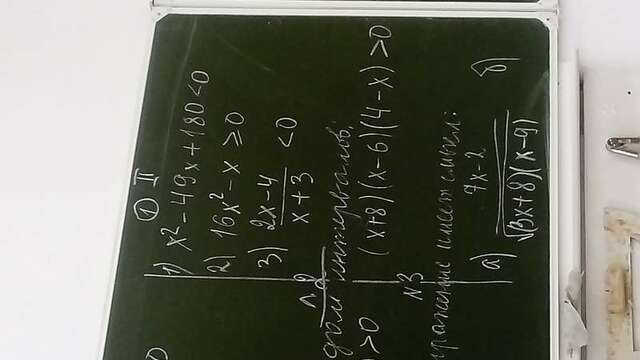 ① II
1) x² - 49x + 180 < 0
2) 16x² - x ≥ 0
3) (2x - 4)/(x + 3) < 0
интервалов:
> 0 (x+8)(x-6)(4-x) > 0
N3
имеет смысл:
а) (7x - 2)/√((3x+8)(x-9)) б)